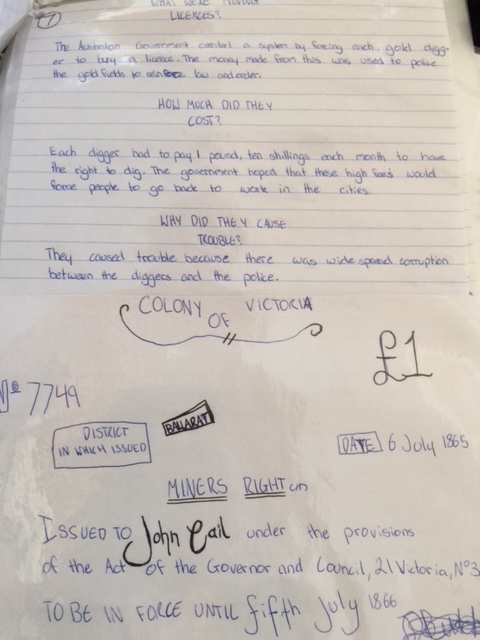 WHAT WERE MINING
7
LICENCES?
The Australian Government created a system by forcing each gold digg-
er to buy a licence. The money made from this was used to police
the gold fields to law and order.
HOW MUCH DID THEY
COST?
Each digger had to pay 1 pound, ten shillings each month to have
the right to dig. The government hoped that these high fees would
force people to go back to work in the cities.
WHY DID THEY CAUSE
TROUBLE?
They caused trouble because there was wide spread corruption
between the diggers and the police.
COLONY OF VICTORIA
£1
Nº 7749
DISTRICT
IN WHICH ISSUED
BALLARAT
DATE 6 July 1865
MINERS RIGHT
ISSUED TO John Cail under the provisions
of the Act of the Governor and Council, 21 Victoria, Nº3
TO BE IN FORCE UNTIL fifth July 1866